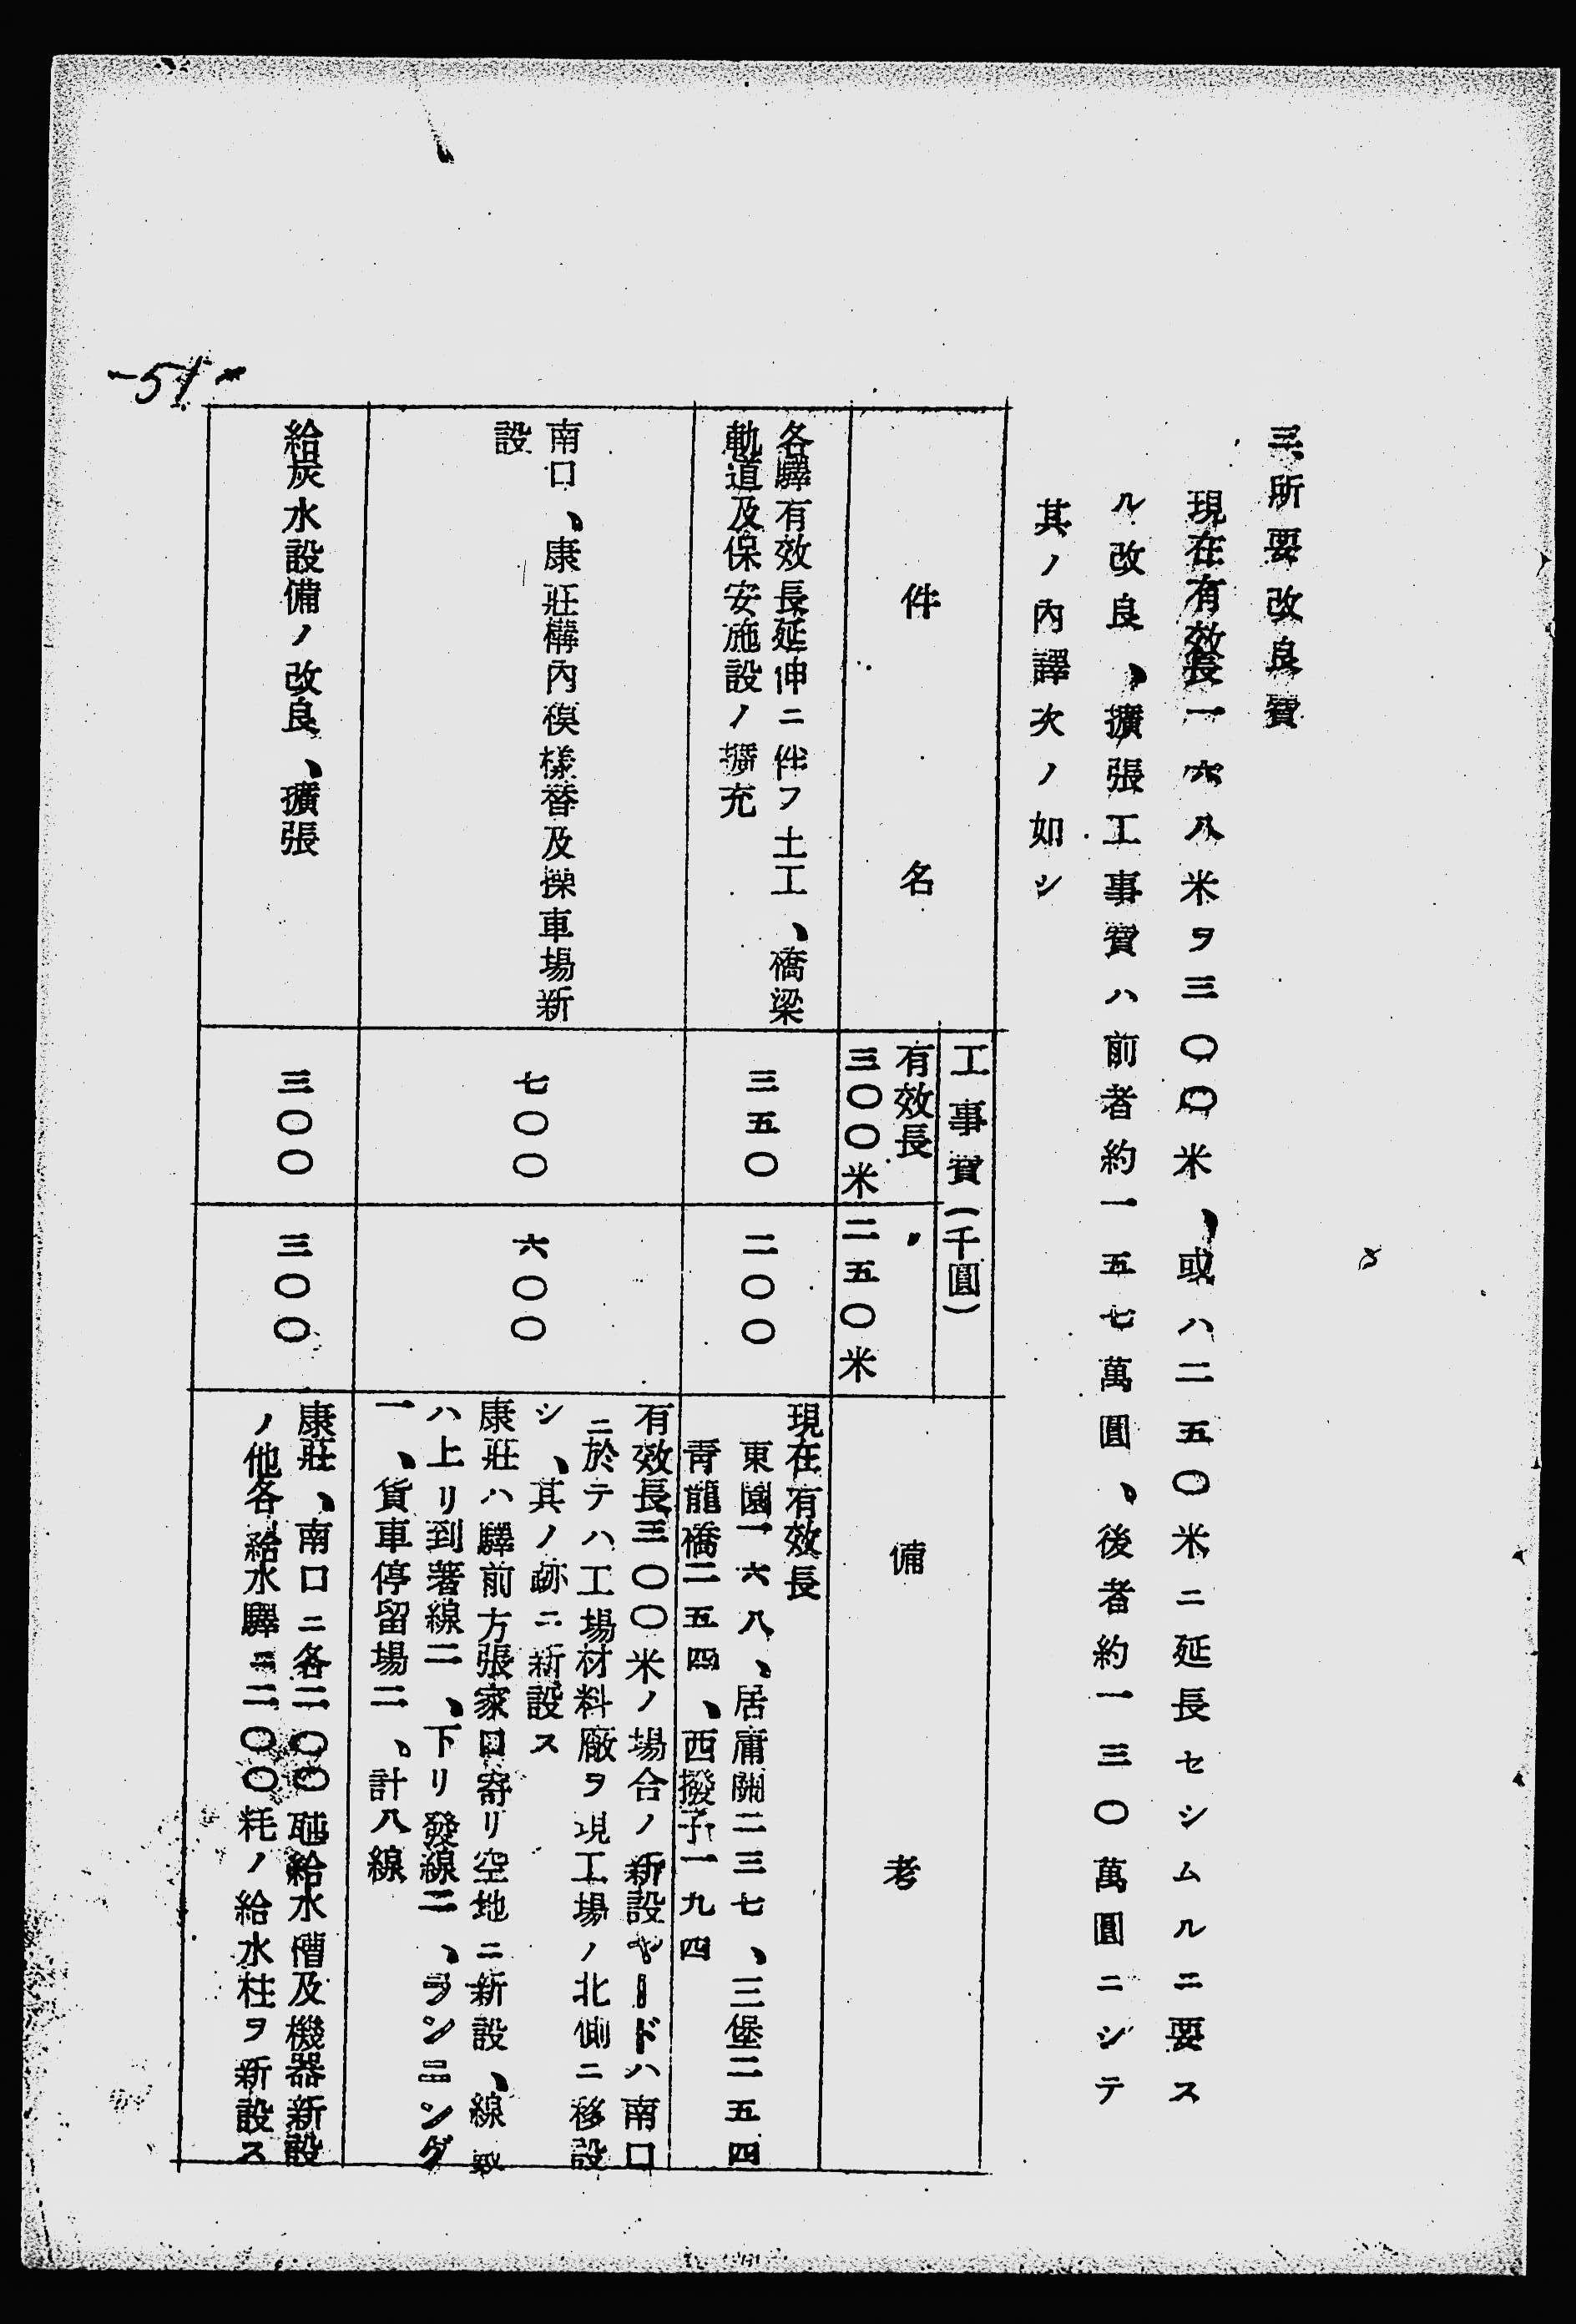 三、所要改良費
現在有效長一六八米ヲ三〇〇米、或ハ二五〇米ニ延長セシムルニ要ス
ル改良、擴張工事費ハ前者約一五七萬圓、後者約一三〇萬圓ニシテ
其ノ內譯次ノ如シ
件名
工事費(千圓)
有效長
三〇〇米
〃
二五〇米
備考
各驛有效長延伸ニ伴フ土工、橋梁
軌道及保安施設ノ擴充
三五〇
二〇〇
現在有效長
東園一六八、居庸關二三七、三堡二五四
靑龍橋二五四、西撥子一九四
南口、康莊構內模樣替及操車場新
設
七〇〇
六〇〇
有效長三〇〇米ノ場合ノ新設ヤードハ南口
ニ於テハ工場材料廠ヲ現工場ノ北側ニ移設
シ、其ノ跡ニ新設ス
康莊ハ驛前方張家口寄リ空地ニ新設、線數
ハ上リ到著線二、下リ發線二、ランニング
一、貨車停留場二、計八線
給炭水設備ノ改良、擴張
三〇〇
三〇〇
康莊、南口ニ各二〇〇瓲給水槽及機器新設
ノ他各給水驛ニ二〇〇粍ノ給水柱ヲ新設ス
-51-